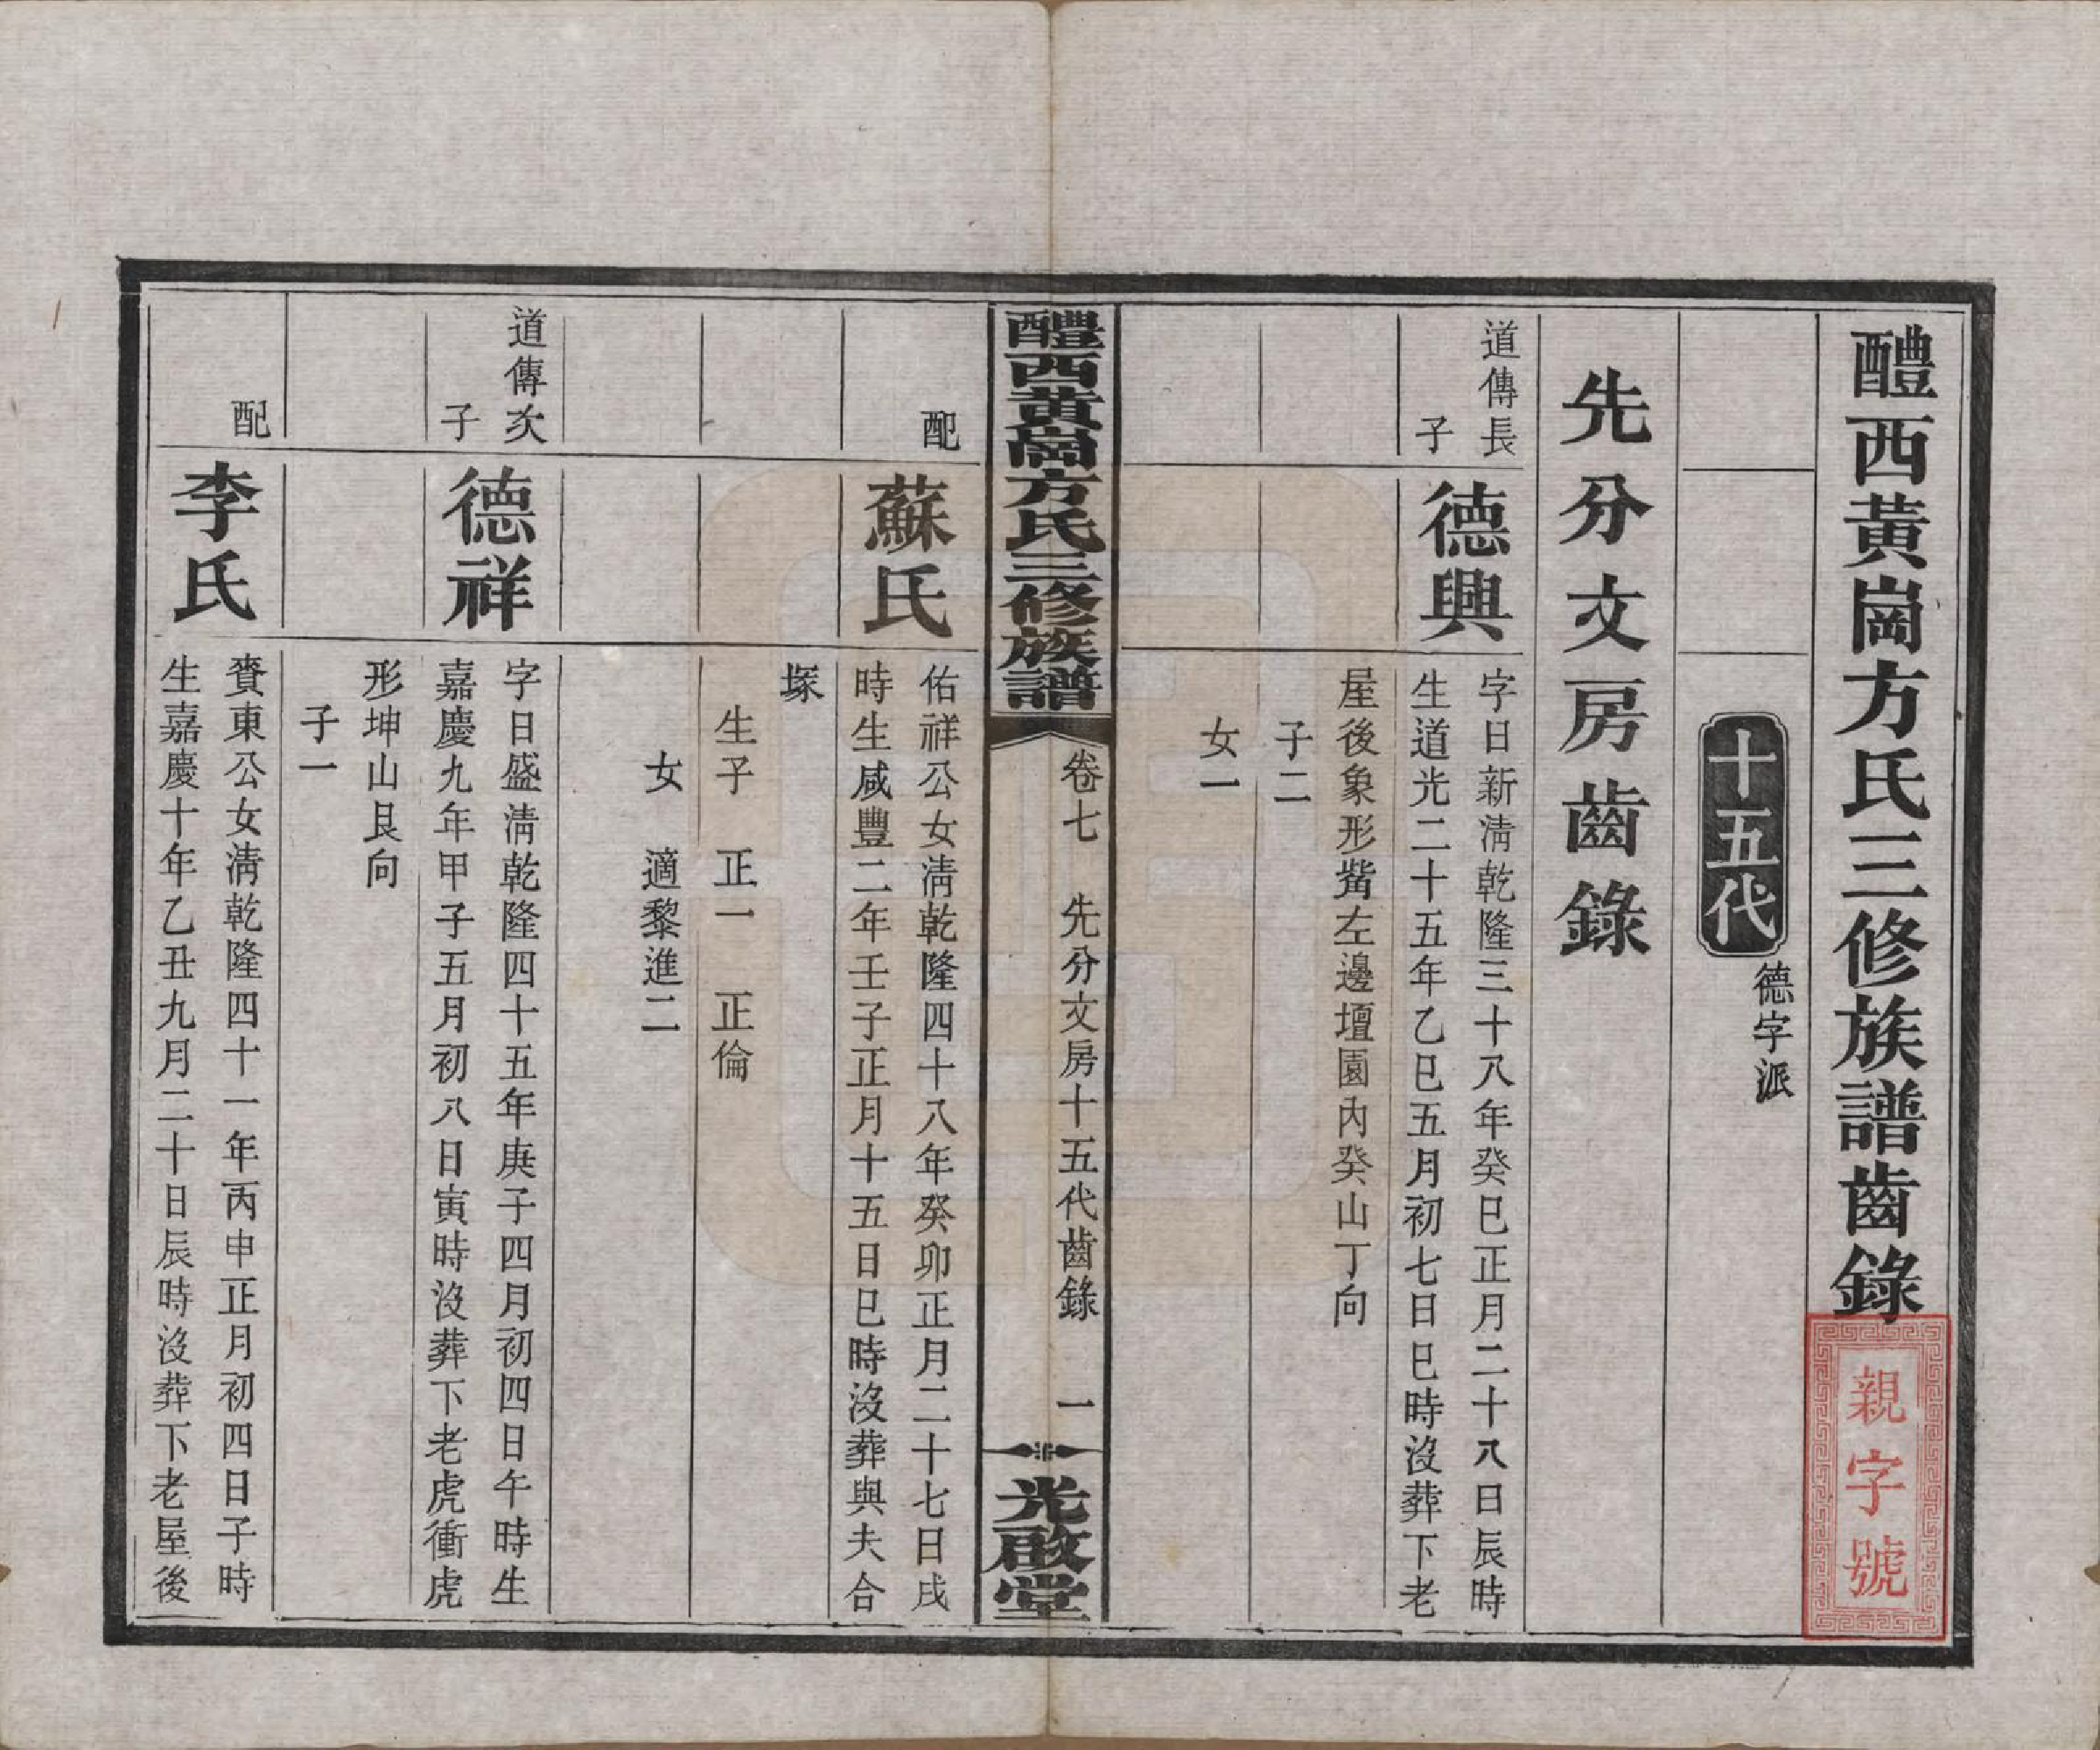 醴西黃崗方氏三修族譜齒錄
親字號
十五代
德字派
先分文房齒錄
道傳長
子
德興
字日新淸乾隆三十八年癸巳正月二十八日辰時
生道光二十五年乙巳五月初七日巳時沒葬下老
屋後象形觜左邊壇園內癸山丁向
子二
女一
醴西黃崗方氏三修族譜
卷七　先分文房十五代齒錄　一
光啟堂
配
蘇氏
佑祥公女淸乾隆四十八年癸卯正月二十七日戌
時生咸豐二年壬子正月十五日巳時沒葬與夫合
塚
生子　正一　正倫
女　適黎進二
道傳次
子
德祥
字日盛淸乾隆四十五年庚子四月初四日午時生
嘉慶九年甲子五月初八日寅時沒葬下老虎衝虎
形坤山艮向
子一
配
李氏
賚東公女淸乾隆四十一年丙申正月初四日子時
生嘉慶十年乙丑九月二十日辰時沒葬下老屋後